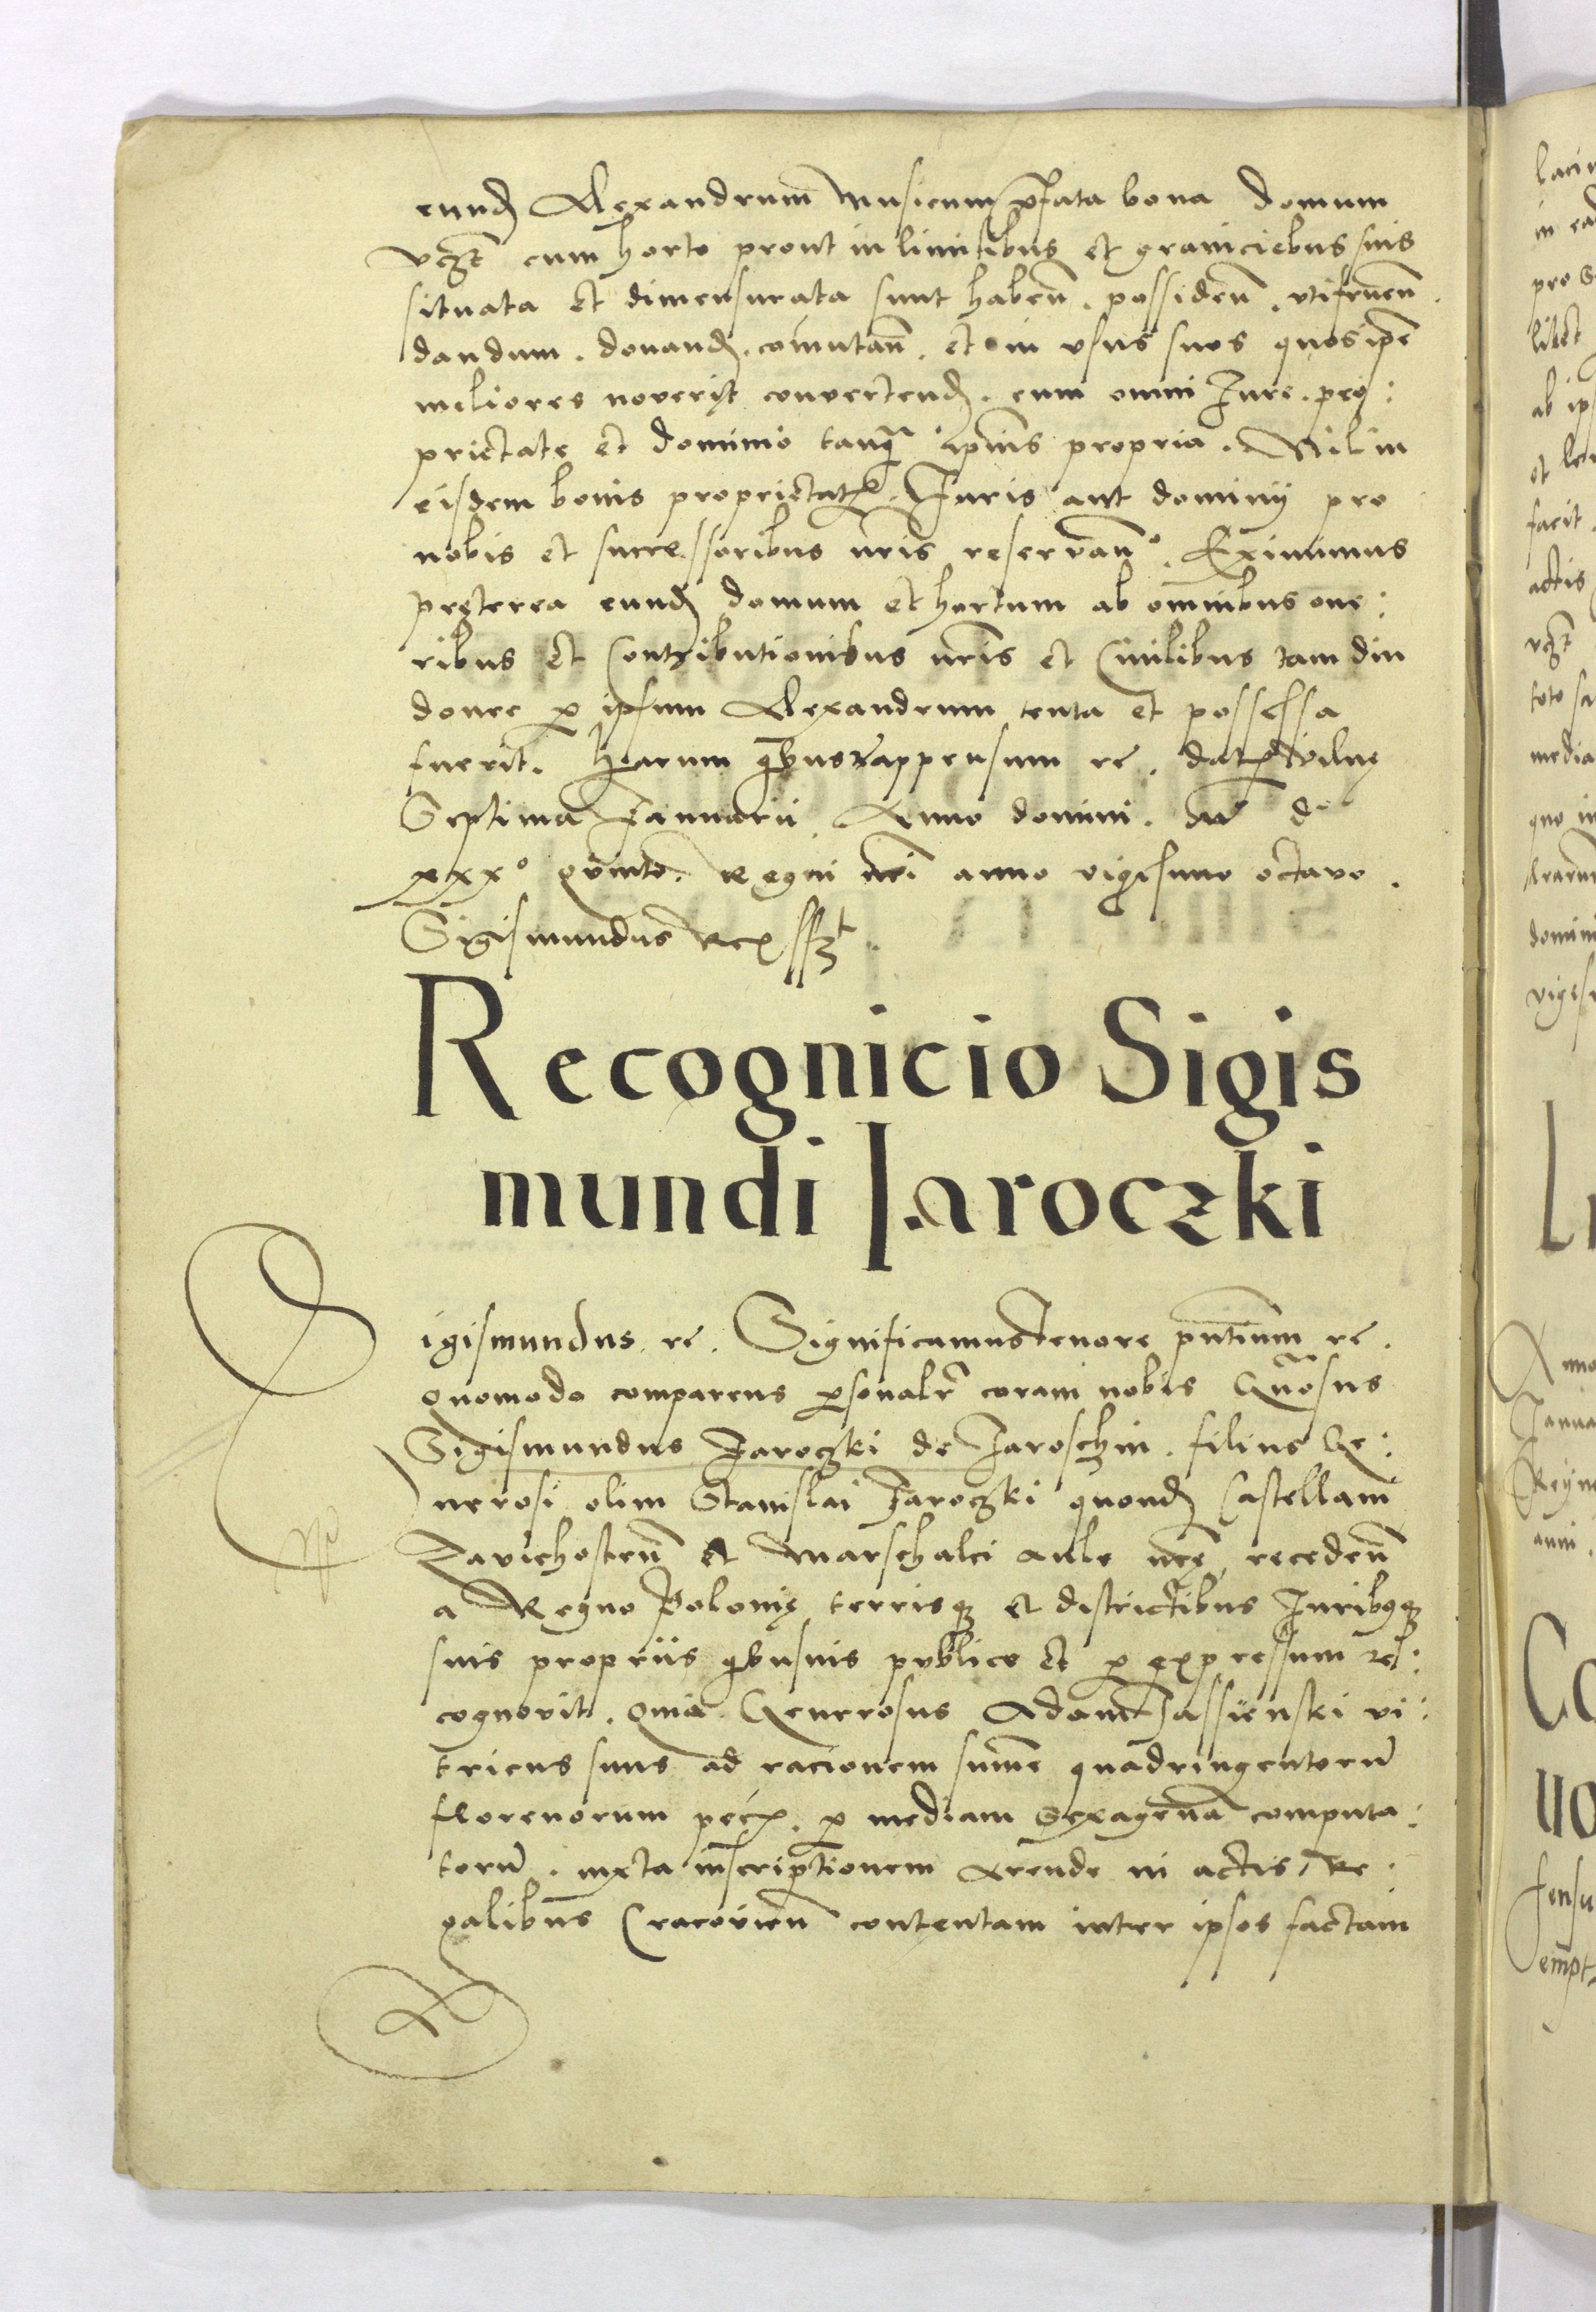 eund Alexandrum Musicum p̄fata bona domum
vczt cum horto prout in limitibus et graniciebus suis
situata et dimensurata sunt habeñ. possideñ. vtifrueñ.
dandum. donand. com̄utañ. et in vsus suos quos ip̄e
meliores noverit convertend. cum omni Iure. pro:
prietate et dominio tanq̄ ip̄ius propria. Nil in
eisdem bonis proprietatis. Iuris aut dominij pro
nobis et successoribus nr̄is reservañ. Eximimus
pręterea eund domum et hortum ab om̄nibus one:
ribus et Contributionibus nr̄is et Civilibus tam diu
donec p ipsum Alexandrum tenta et possessa
fuerit. Harum qbus rc appensum rc. dat Vilnę
Septima Januarii. Anno domini. M° d°
xxx° quinto. Regni nr̄i anno vigesimo octavo.
Sigismundus Rex sszt.
Recognicio Sigis
mundi Iaroczki
Sigismundus. rc. Significamus tenore pñtium rc.
quomodo comparens psonalr̄ coram nobis Gñosus
Sigismundus Jaroczki de Jaroschin. filius Ge:
nerosi olim Stanislai Jaroczki quond Castellani
Zavichosteñ et Marschalci aule nr̄ę, recedeñ
a Regno Polonię terrisq et districtibus Iuribqq
suis propriis qbusuis publice et p expressum re:
cognovit. Quia Generosus Adam Jassienski vi:
tricus suus ad racionem sum̄e quadringentorū
florenorum pec. p mediam sexagenā computa:
torū. iuxta inscriptionem Arende in actis Re:
galibus Cracovieñ contentam inter ipsos factam